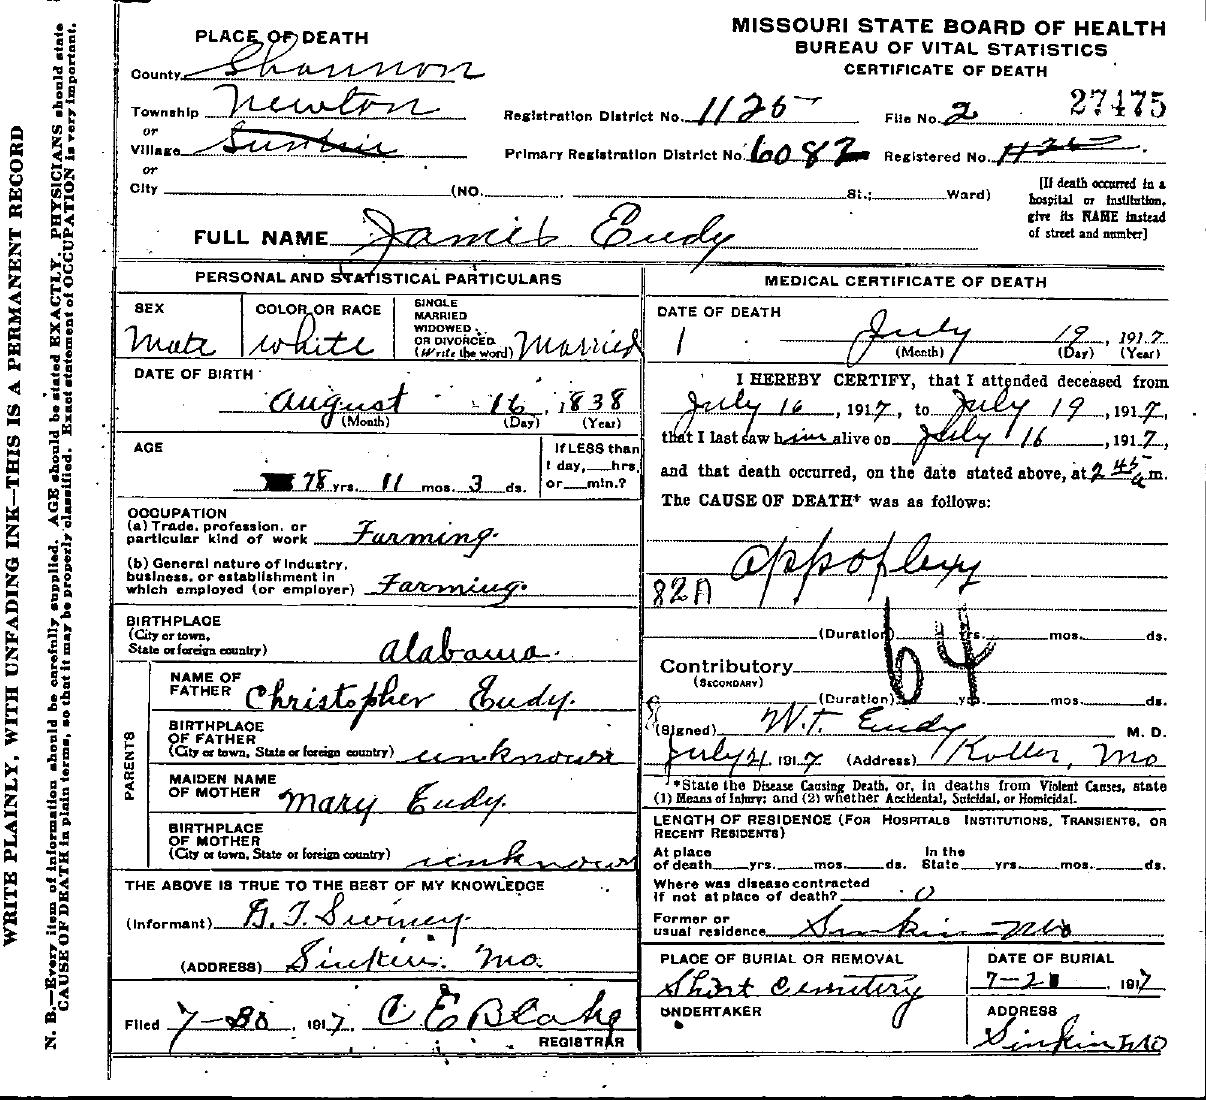 MISSOURI STATE BOARD OF HEALTH
BUREAU OF VITAL STATISTICS
CERTIFICATE OF DEATH
PLACE OF DEATH
County Shannon
Township Newton
or
Village Sinkin
or
City (NO. St.; Ward)
Registration District No. 1125 File No. 2 27475
Primary Registration District No. 6082 Registered No. 1125
[If death occurred in a
hospital or institution,
give its NAME instead
of street and number]
FULL NAME James Eudy
PERSONAL AND STATISTICAL PARTICULARS
SEX
Male
COLOR OR RACE
White
SINGLE
MARRIED
WIDOWED
OR DIVORCED
(Write the word) Married
DATE OF BIRTH
August 16, 1838
(Month) (Day) (Year)
AGE
78 yrs. 11 mos. 3 ds.
If LESS than
1 day, hrs.
or min.?
OCCUPATION
(a) Trade, profession, or
particular kind of work Farming.
(b) General nature of industry,
business, or establishment in
which employed (or employer) Farming.
BIRTHPLACE
(City or town,
State or foreign country) Alabama.
PARENTS
NAME OF
FATHER Christopher Eudy.
BIRTHPLACE
OF FATHER
(City or town, State or foreign country) unknown
MAIDEN NAME
OF MOTHER Mary Eudy.
BIRTHPLACE
OF MOTHER
(City or town, State or foreign country) unknown
THE ABOVE IS TRUE TO THE BEST OF MY KNOWLEDGE
(Informant) G.T. Swiney.
(ADDRESS) Sinkin. Mo.
Filed 7-30, 1917, C E Blake
REGISTRAR
MEDICAL CERTIFICATE OF DEATH
DATE OF DEATH
1 July 19, 1917
(Month) (Day) (Year)
I HEREBY CERTIFY, that I attended deceased from
July 16, 1917, to July 19, 1917,
that I last saw him alive on July 16, 1917,
and that death occurred, on the date stated above, at 2 45 a m.
The CAUSE OF DEATH* was as follows:
appoplexy
82A
64
(Duration) yrs. mos. ds.
Contributory
(SECONDARY)
(Duration) yrs. mos. ds.
(Signed) W.T. Eudy M. D.
July 21, 1917 (Address) Mo
*State the Disease Causing Death, or, in deaths from Violent Causes, state
(1) Means of Injury; and (2) whether Accidental, Suicidal, or Homicidal.
LENGTH OF RESIDENCE (FOR HOSPITALS INSTITUTIONS, TRANSIENTS, OR
RECENT RESIDENTS)
At place
of death yrs. mos. ds.
In the
State yrs. mos. ds.
Where was disease contracted
if not at place of death? 0
Former or
usual residence Sinkin Mo
PLACE OF BURIAL OR REMOVAL
Short Cemetery
DATE OF BURIAL
7-21, 1917
UNDERTAKER
ADDRESS
Sinkin Mo
WRITE PLAINLY, WITH UNFADING INK—THIS IS A PERMANENT RECORD
N. B.—Every item of information should be carefully supplied. AGE should be stated EXACTLY. PHYSICIANS should state
CAUSE OF DEATH in plain terms, so that it may be properly classified. Exact statement of OCCUPATION is very important.